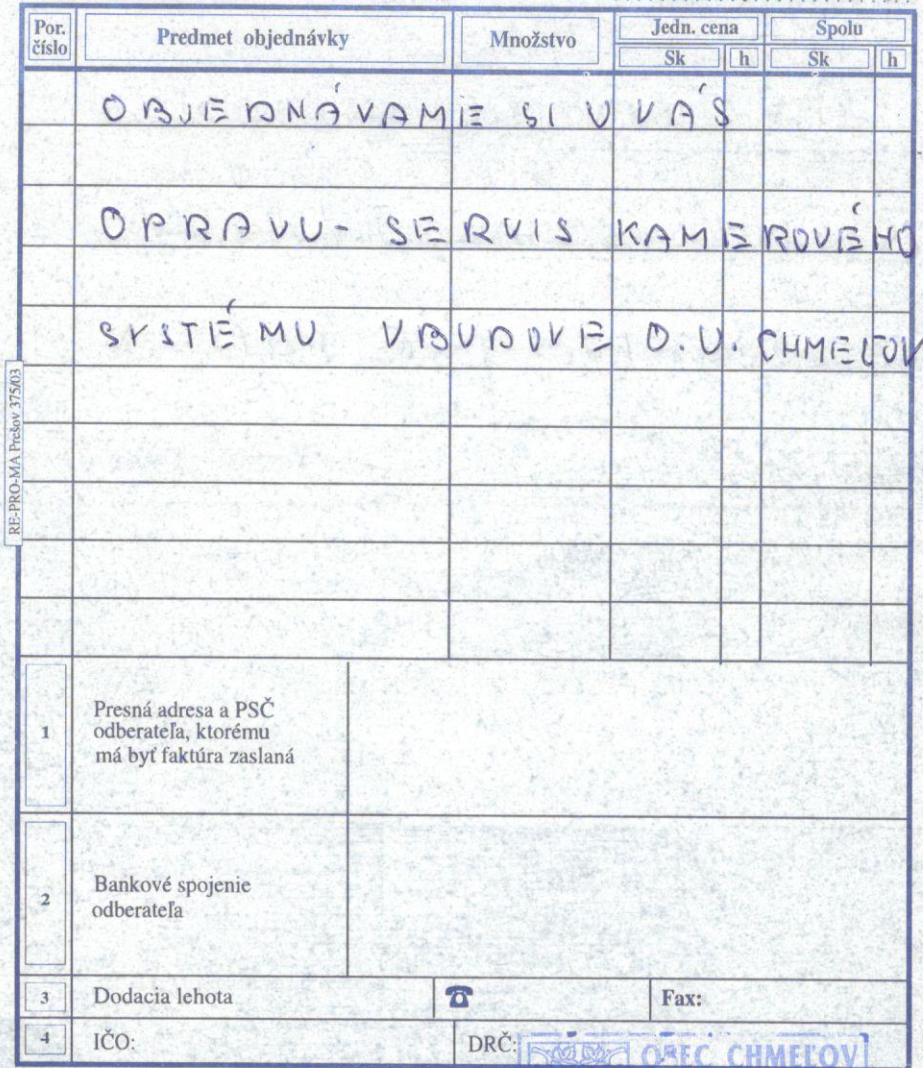 Por. číslo Predmet objednávky Množstvo Jedn. cena Spolu
Sk h Sk h
OBJEDNÁVAME SI U VÁS
OPRAVU- SERVIS KAMEROVÉHO
SYSTÉMU V BUDOVE O.U. CHMEĽOV
RE-PRO-MA Prešov 375/03
1 Presná adresa a PSČ
odberateľa, ktorému
má byť faktúra zaslaná
2 Bankové spojenie
odberateľa
3 Dodacia lehota ☎ Fax:
4 IČO: DRČ:
OBEC CHMEĽOV